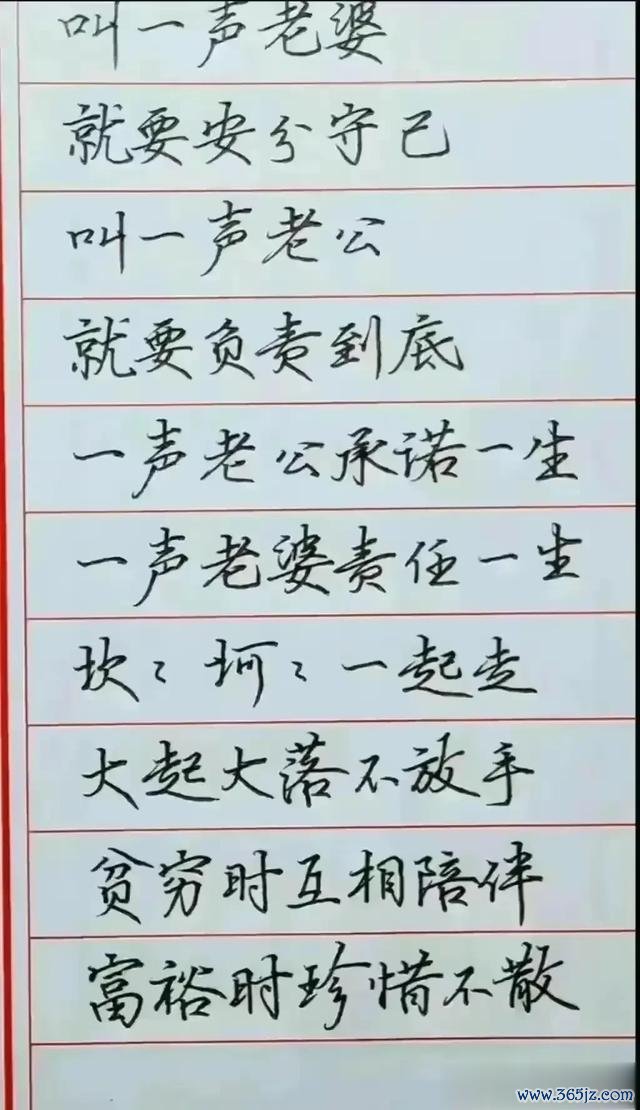 叫一声老婆
就要安分守己
叫一声老公
就要负责到底
一声老公承诺一生
一声老婆责任一生
坎々坷々一起走
大起大落不放手
贫穷时互相陪伴
富裕时珍惜不散
www.365jz.com